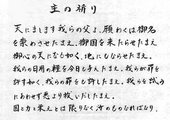 主の祈り
天にまします我らの父よ、願わくは御名
を崇めさせたまえ。御国を来たらせたまえ
御心の天になる如く、地にもならせたまえ。
我らの日用の糧を今日も与えたまえ。我らに罪を
許す如く、我らの罪をも許したまえ。我らを試みに
あわせず悪より救いだしたまえ。
国と力と栄えとは限りなく汝のものなればなり。